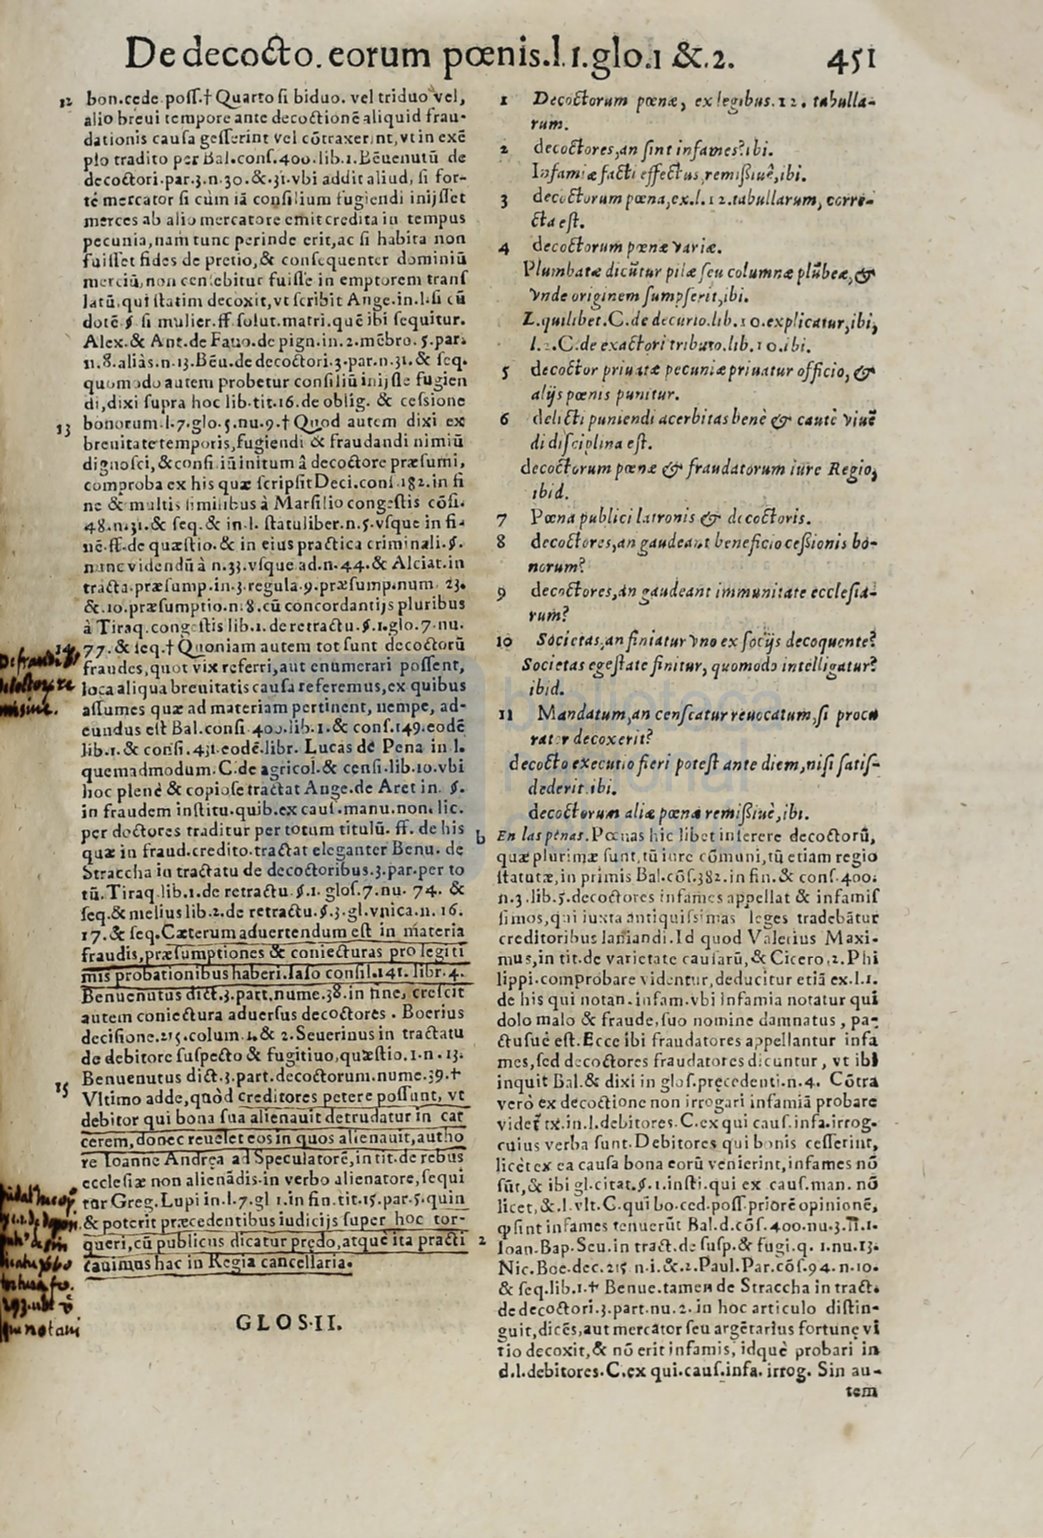 De decocto. eorum pœnis.l.1.glo.1 &.2. 451
12 bon.cede.poss.† Quarto si biduo. vel triduo vel,
alio breui tempore ante decoctionē aliquid frau-
dationis causa gesserint vel cōtraxerint, vt in exē
plo tradito per Bal.conf.400.lib.1.Bēuenutū de
decoctori.par.3.n.30.&.31.vbi addit aliud, si for-
tè mercator si cùm iā consilium fugiendi inijsset
merces ab alio mercatore emit credita in tempus
pecunia, nam tunc perinde erit, ac si habita non
fuisset fides de pretio, & consequenter dominiū
merciū, non censebitur fuisse in emptorem transf
latū. qui statim decoxit, vt scribit Ange.in.l.si cū
dotē § si mulier.ff solut.matri.quē ibi sequitur.
Alex.& Ant.de Fano.de pign.in.2.mēbro.5.par.
11.8.aliàs.n.13.Bēu.de decoctori.3.par.n.31.& seq.
quomodo autem probetur consiliū inijsse fugien
di, dixi supra hoc lib.tit.16.de oblig. & cessione
13 bonorum.l.7.glo.5.nu.9.† Quod autem dixi ex
breuitate temporis, fugiendi & fraudandi nimiū
dignosci, & consiliū initum â decoctore præsumi,
comproba ex his quæ scripsit Deci.conf.182.in fi
ne & multis similibus à Marsilio congestis cōsi.
48.n.31.& seq.& in.l. statuliber.n.5.vsque in fi-
nē.ff.de quæstio.& in eius practica criminali.§.
nunc videndū à n.33.vsque ad.n.44.& Alciat.in
tracta.præsump.in.3.regula.9.præsump.num. 23.
&.10.præsumptio.n.8.cū concordantijs pluribus
à Tiraq.congestis lib.1.de retractu.§.1.glo.7.nu.
14 77.& seq.† Quoniam autem tot sunt decoctorū
fraudes, quot vix referri, aut enumerari possent,
loca aliqua breuitatis causa referemus, ex quibus
assumes quæ ad materiam pertinent, nempe, ad-
eundus est Bal.consi.400.lib.1.& conf.149.eodē
lib.1.& consi.431.eodē.libr. Lucas de Pena in l.
quemadmodum.C.de agricol.& censi.lib.10.vbi
hoc plenè & copiose tractat Ange.de Aret in. §.
in fraudem institu.quib.ex caus.manu.non. lic.
per doctores traditur per totum titulū. ff. de his
quæ in fraud.credito.tractat eleganter Benu. de
Straccha in tractatu de decoctoribus.3.par.per to
tū.Tiraq.lib.1.de retractu.§.1. glos.7.nu. 74. &
seq.& melius lib.2.de retractu.§.3.gl.vnica.n. 16.
17.& seq.Cæterum aduertendum est in materia
fraudis, præsumptiones & coniecturas pro legiti
mis probationibus haberi.Iaso consil.141. libr.4.
Benuenutus dict.3.part.nume.38.in fine, crescit
autem coniectura aduersus decoctores . Boerius
decisione.215.colum.1.& 2.Seuerinus in tractatu
de debitore suspecto & fugitiuo, quæstio.1.n.13.
Benuenutus dict.3.part.decoctorum.nume.39.†
15 Vltimo adde, quòd creditores petere possunt, vt
debitor qui bona sua alienauit detrudatur in car
cerem, donec reuelet eos in quos alienauit, autho
re Ioanne Andrea ad Speculatorē, in tit.de rebus
ecclesiæ non alienādis.in verbo alienatore, sequi
tur Greg.Lupi in.l.7.gl 1.in fin.tit.15.par.5.quin
& poterit præcedentibus iudicijs super hoc tor-
queri, cū publicus dicatur prędo, atque ita practi
cauimus hac in Regia cancellaria.
GLOS.II.
1 Decoctorum pœnæ, ex legibus.12. tabulla-
rum.
2 decoctores, an sint infames? ibi.
Infamiæ facti effectus, remissiuè, ibi.
3 decoctorum pœna, ex.l.12.tabullarum, corre-
cta est.
4 decoctorum pœnæ variæ.
Plumbatæ dicūtur pilæ seu columnæ plūbeæ, &
vnde originem sumpserit, ibi.
L.quilibet.C.de decurio.lib.10.explicatur, ibi,
l.2.C.de exactori tributo.lib.10.ibi.
5 decoctor priuatæ pecuniæ priuatur officio, &
alijs pœnis punitur.
6 delicti puniendi acerbitas benè & cautè viuē
di disciplina est.
decoctorum pœnæ & fraudatorum iure Regio,
ibid.
7 Pœna publici latronis & decoctoris.
8 decoctores, an gaudeant beneficio cessionis bo-
norum?
9 decoctores, an gaudeant immunitate ecclesia-
rum?
10 Societas, an finiatur vno ex socijs decoquente?
Societas egestate finitur, quomodo intelligatur?
ibid.
11 Mandatum, an censeatur reuocatum, si procu
rator decoxerit?
decocto executio fieri potest ante diem, nisi satis-
dederit.ibi.
decoctorum aliæ pœnæ remissiuè, ibi.
b En las penas.Pœnas hic libet inserere decoctorū,
quæ plurimæ sunt, tū iure cōmuni, tū etiam regio
statutæ, in primis Bal.cōf.382.in fin.& conf.400.
n.3.lib.5.decoctores infames appellat & infamis
simos, qui iuxta antiquissimas leges tradebātur
creditoribus laniandi.Id quod Valerius Maxi-
mus, in tit.de varietate causarū, & Cicero.2.Phi
lippi.comprobare videntur, deducitur etiā ex.l.1.
de his qui notan.infam.vbi infamia notatur qui
dolo malo & fraude, suo nomine damnatus , pa-
ctusuè est.Ecce ibi fraudatores appellantur infa
mes, sed decoctores fraudatores dicuntur , vt ibi
inquit Bal.& dixi in glos.pręcedenti.n.4. Cōtra
verò ex decoctione non irrogari infamiā probare
videt̄ tx.in.l.debitores.C.ex qui caus.infa.irrog.
cuius verba sunt.Debitores qui bonis cesserint,
licèt ex ea causa bona eorū venierint, infames nō
fiūt, & ibi gl.citat.§.1.insti.qui ex caus.man. nō
licet, &.l.vlt.C.qui bo.ced.poss.priorē opinionē,
qp sint infames tenuerūt Bal.d.cōs.400.nu.3.II.1.
2 Ioan.Bap.Seu.in tract.de susp.& fugi.q. 1.nu.13.
Nic.Boe.dec.215 n.1.&.2.Paul.Par.cōs.94.n.10.
& seq.lib.1.† Benue.tamen de Straccha in tract.
de decoctori.3.part.nu.2.in hoc articulo distin-
guit, dicēs, aut mercator seu argētarius fortunę vi
tio decoxit, & nō erit infamis, idque probari in
d.l.debitores.C.ex qui.caus.infa. irrog. Sin au-
tem